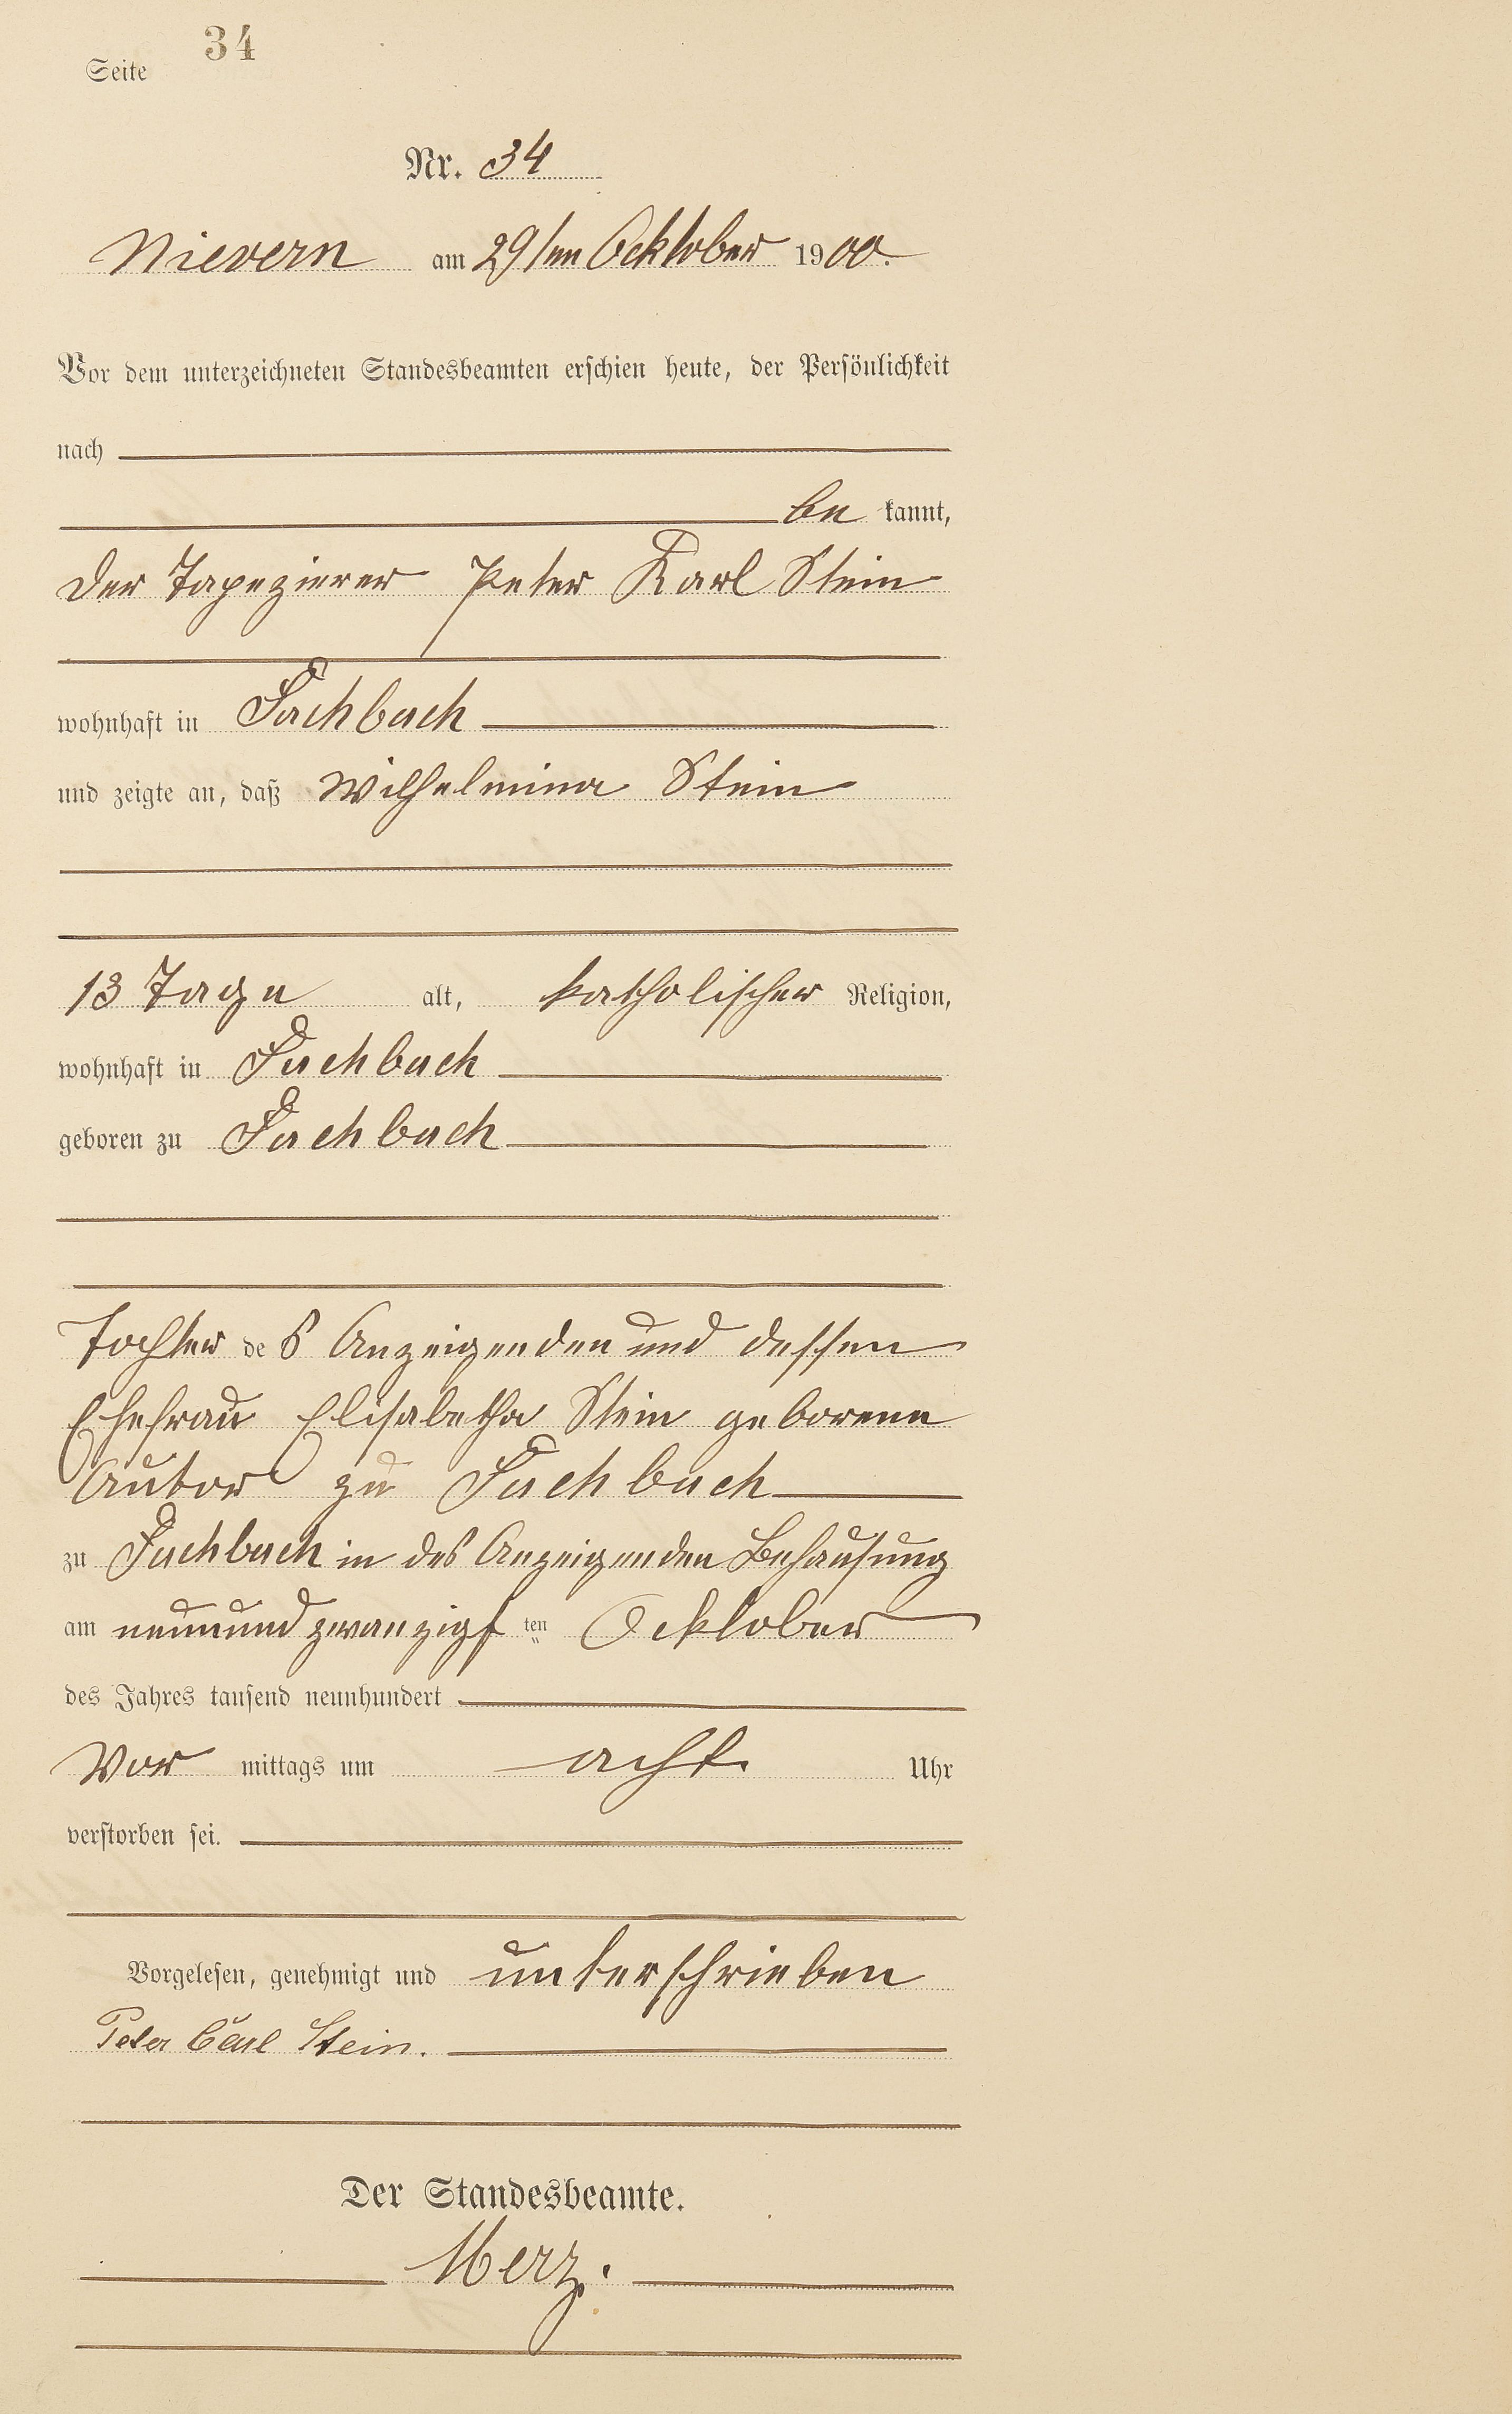 Seite 34
Nr. 34
Nievern am 29ten Ocktober 1900.
Vor dem unterzeichneten Standesbeamten erschien heute, der Persönlichkeit
nach
be kannt,
der Tapezierer Peter Karl Stein
wohnhaft in Fachbach
und zeigte an, daß Wilhelmina Stein
13 Tage alt, katholischer Religion,
wohnhaft in Fachbach
geboren zu Fachbach
Tochter des Anzeigenden und dessen
Ehefrau Elisabetha Stein geborene
zu Fachbach
zu Fachbach in des Anzeigenden Behausung
am neunundzwanzigsten Ocktober
des Jahres tausend neunhundert
Vor mittags um acht Uhr
verstorben sei.
Vorgelesen, genehmigt und unterschrieben
Peter Carl Stein.
Der Standesbeamte.
Merz.